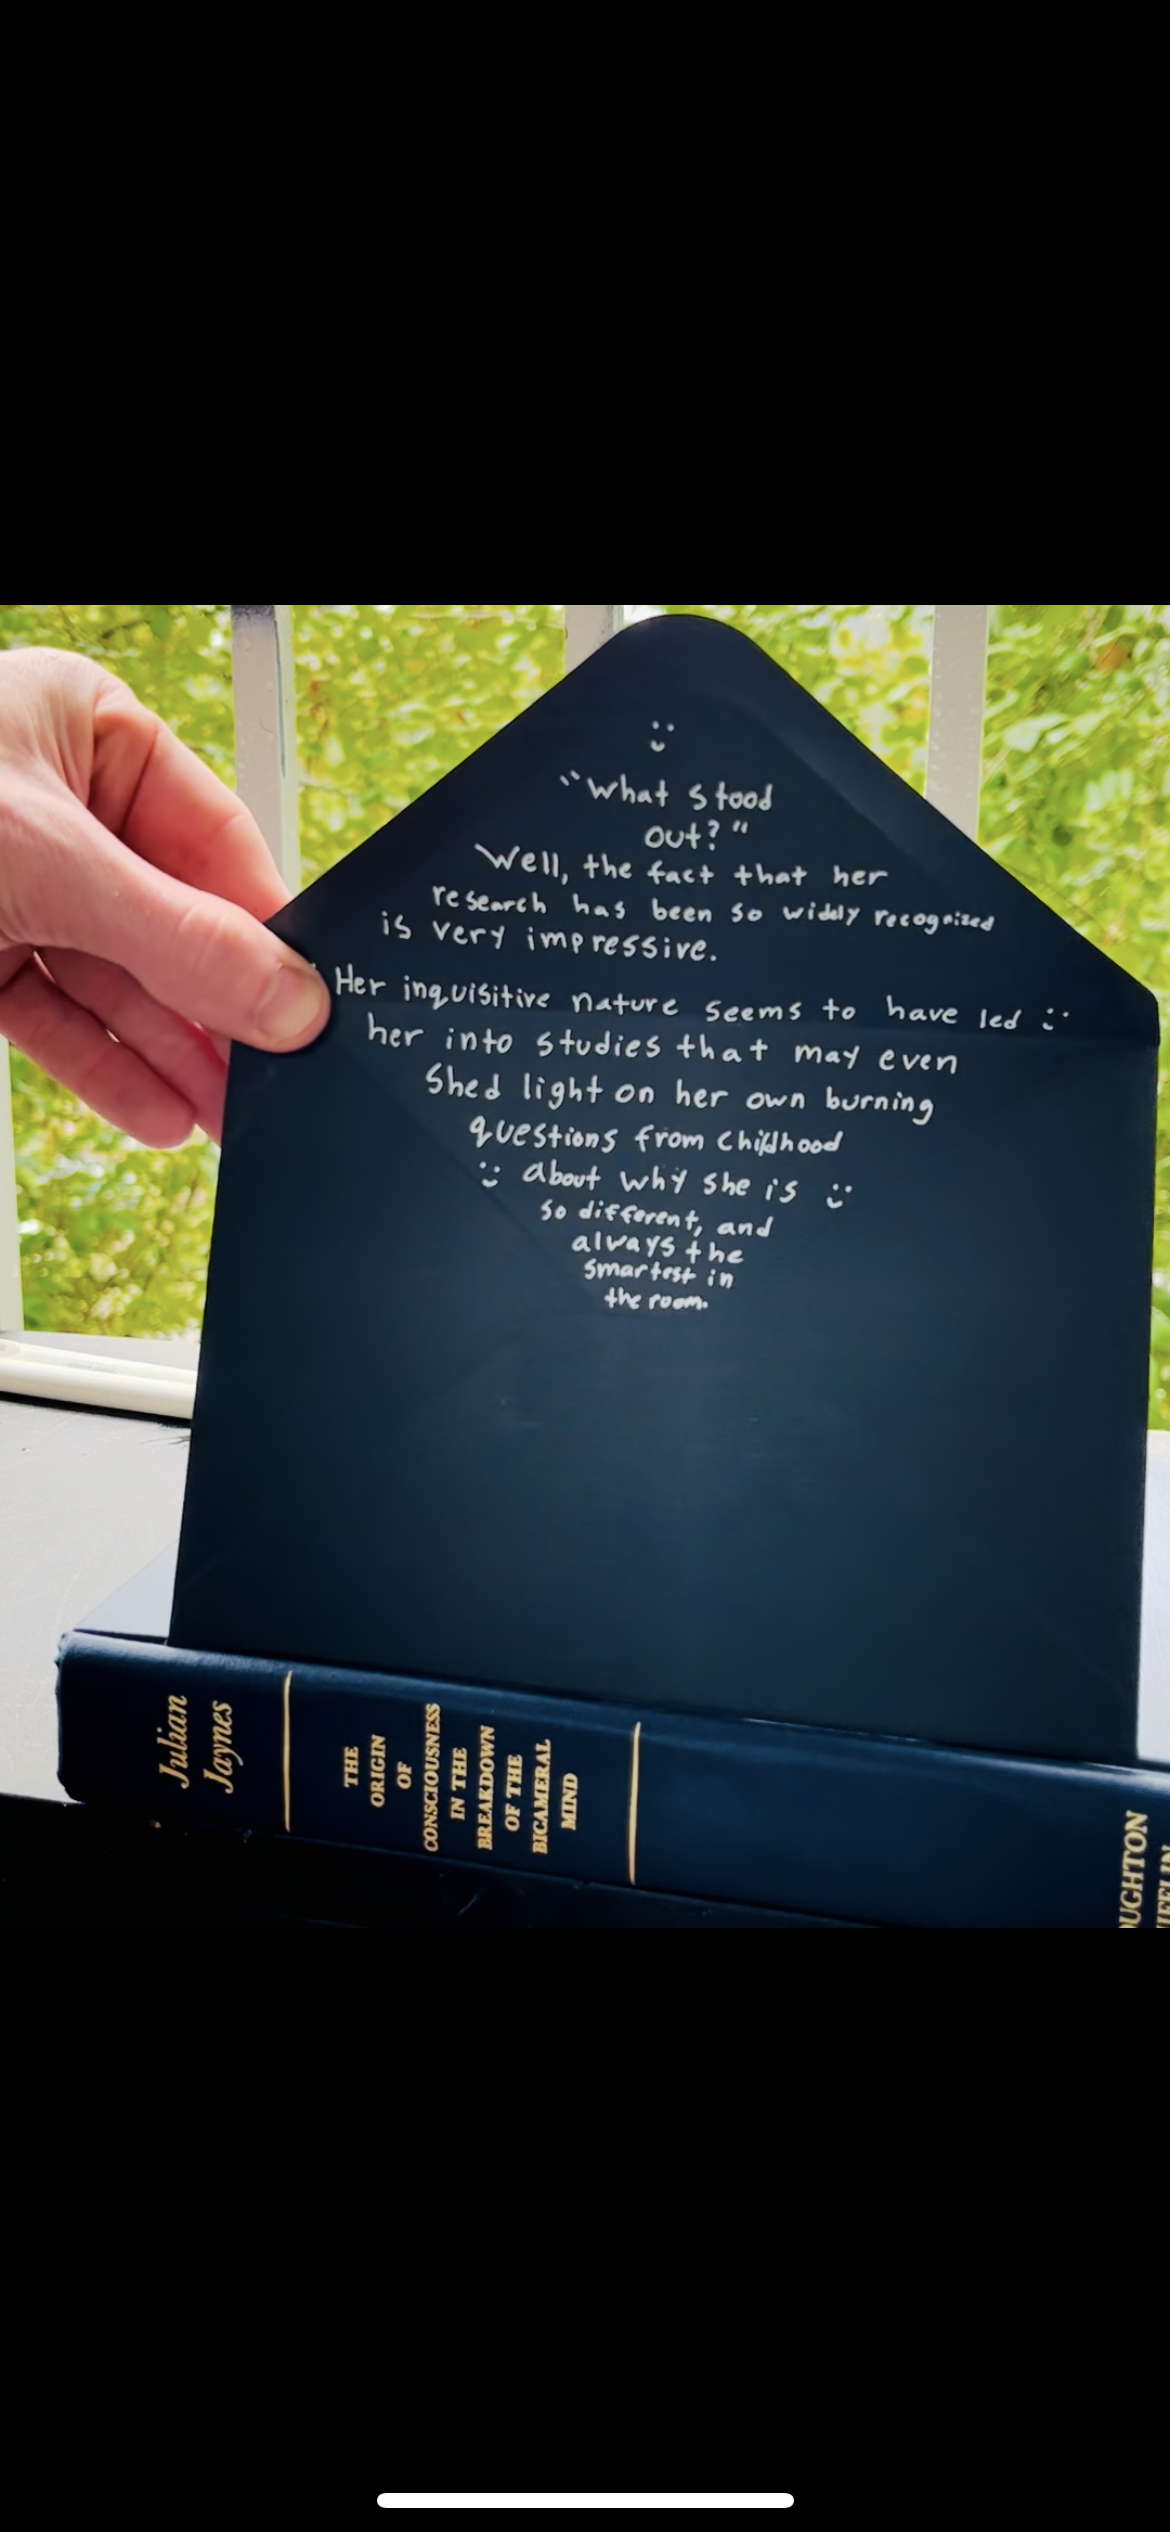 "What stood
out?"
Well, the fact that her
research has been so widely recognized
is very impressive.
Her inquisitive nature seems to have led
her into studies that may even
shed light on her own burning
questions from childhood
about why she is
so different, and
always the
smartest in
the room.
Julian
Jaynes
THE
ORIGIN
OF
CONSCIOUSNESS
IN THE
BREAKDOWN
OF THE
BICAMERAL
MIND
OUGHTON